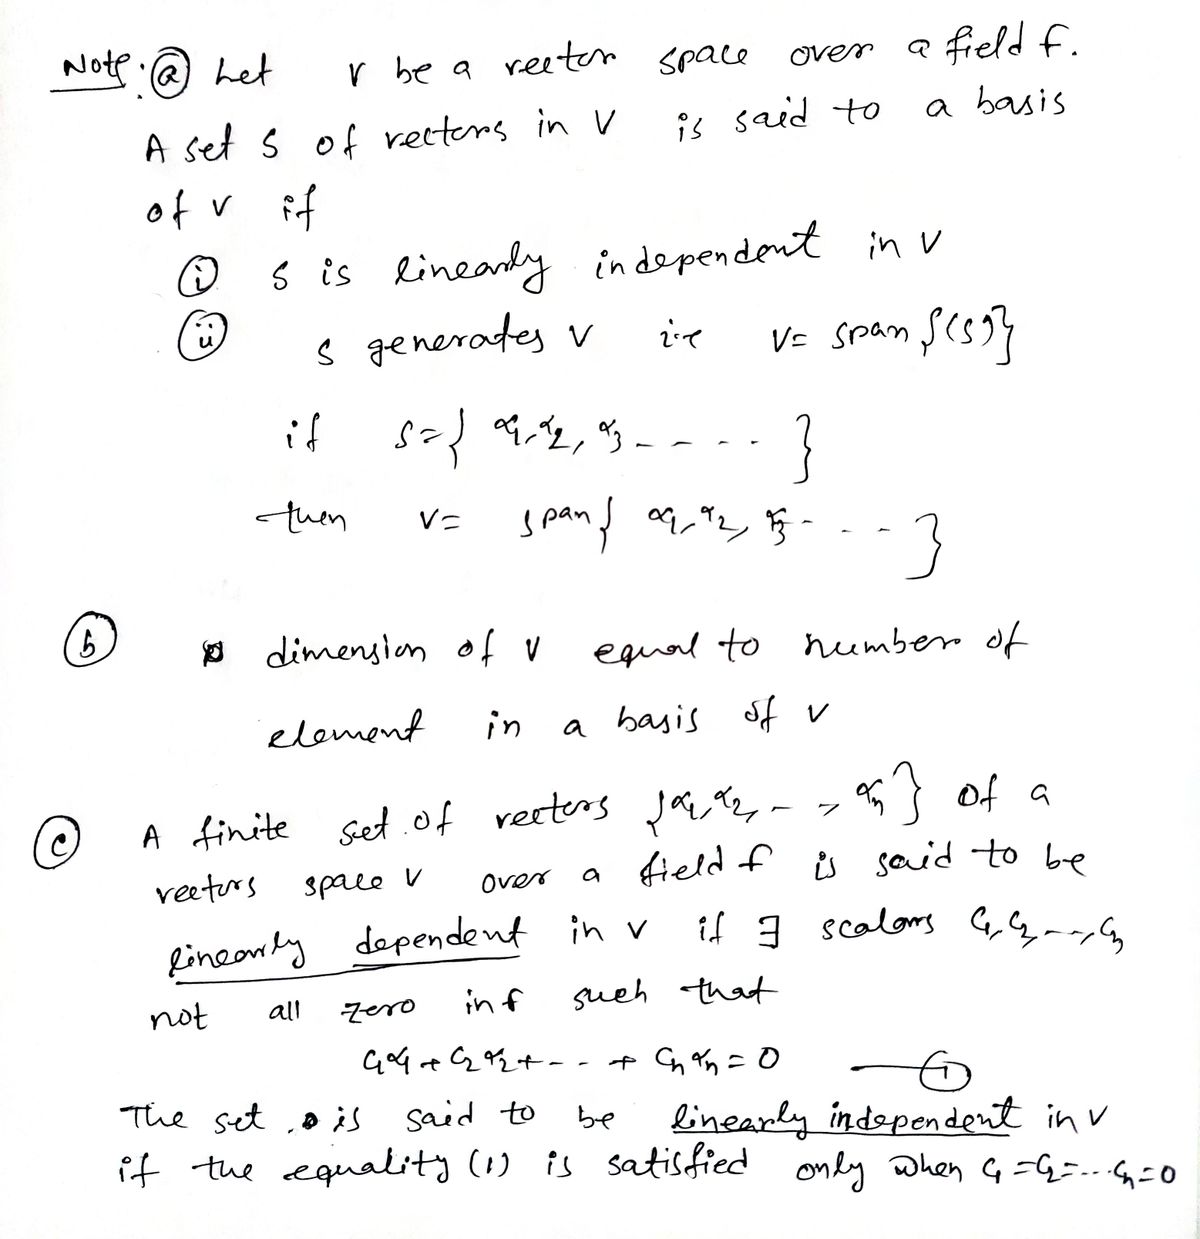 Note: (a) Let V be a vector space over a field F.
A set S of vectors in V is said to a basis
of V if
(i) S is linearly independent in V
(ii) S generates V i.e V= span {(S)}
if S={ α1, α2, α3 - - - - - }
then V= span{ α1, α2, α3 - - - - }
(b) dimension of V equal to number of
element in a basis of V
(c) A finite set of vectors {α1, α2, - - , αn} of a
vectors space V over a field F is said to be
linearly dependent in V if ∃ scalars C1, C2, - - -, Cn
not all zero in F such that
C1α1 + C2α2 + - - - + Cnαn = 0 — (1)
The set is said to be linearly independent in V
if the equality (1) is satisfied only when C1 = C2 = ... Cn = 0